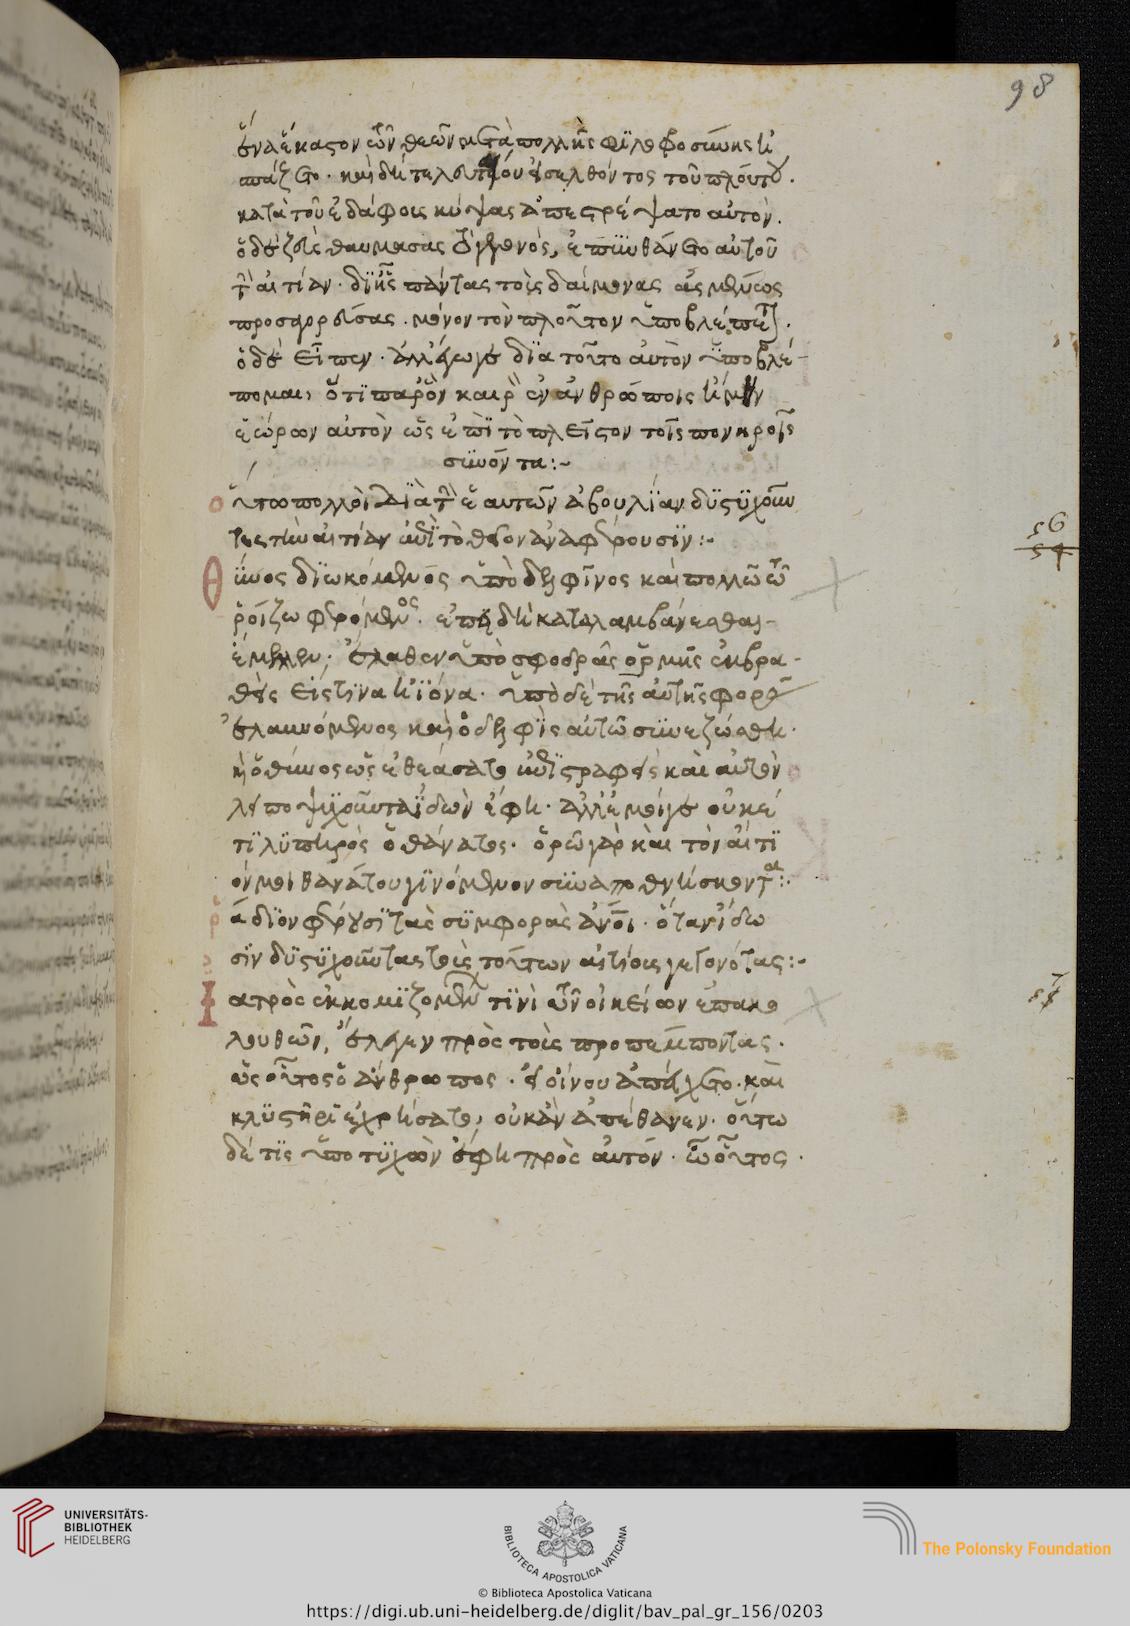 98
ἕνα ἕκαστον τῶν θεῶν μετὰ πολλῆς φιλοφροσύνης ἠ
σπάζετο. καὶ δὴ τελευταῖον εἰσελθόντος τοῦ πλούτου.
κατὰ τοῦ ἐδάφους κύψας ἀπεστρέψατο αὐτόν.
ὁ δὲ ζεὺς θαυμάσας τὸ γεγονὸς, ἐπυνθάνετο αὐτοῦ
τὴν αἰτίαν. δι' ἣν πάντας τοὺς δαίμονας ἀσμένως
προσαγορεύσας. μόνον τὸν πλοῦτον ὑποβλέπεται.
ὁ δὲ εἶπεν. ἀλλ' ἔγωγε διὰ τοῦτο αὐτὸν ὑποβλέ-
πομαι, ὅτι παρ' ὃν καιρὸν ἐν ἀνθρώποις ἤμην
ἑώρων αὐτὸν ὡς ἐπὶ τὸ πλεῖστον τοῖς πονηροῖς
συνόντα:~
οὕτω πολλοὶ διὰ τὴν ἑαυτῶν ἀβουλίαν δυστυχοῦν
τες τὴν αἰτίαν ἐπὶ τὸ θεῖον ἀναφέρουσιν:~
Θύνος διωκόμενος ὑπὸ δελφῖνος καὶ πολλῶ τῶ
ῥοίζω φερόμενος. ἐπειδὴ καταλαμβάνεσθαι
ἔμελλεν, ἔλαθεν ὑπὸ σφοδρᾶς ὁρμῆς ἐκβρα-
θεὶς εἴς τινα ἠϊόνα. ὑπὸ δὲ τῆς αὐτῆς φορᾶς
ἐλαυνόμενος καὶ ὁ δελφὶς αὐτῶ συνεξώσθη.
καὶ ὁ θύνος ὡς ἐθεάσατο ἐπιστραφεὶς καὶ αὐτὸν
λιποψυχοῦντα ἰδὼν ἔφη. ἀλλ' ἐμοίγε οὐκέ
τι λυπηρὸς ὁ θάνατος. ὁρῶ γὰρ καὶ τὸν αἴτι
όν μοι θανάτου γινόμενον συναποθνήσκοντα:.
ῥάδιον φέρουσι τὰς συμφορὰς ἄνοι. ὅταν ἴδω
σιν δυστυχοῦντας τοὺς τούτων αἰτίους γεγονότας:~
Ἰατρὸς ἐκκομιζομένῳ τινὶ τῶν οἰκείων ἐπακο
λουθῶν, ἔλεγεν πρὸς τοὺς προπέμποντας.
ὡς οὗτος ὁ ἄνθρωπος. εἰ οἴνου ἀπείχετο. καὶ
κλυστῆρι ἐχρήσατο, οὐκ ἂν ἀπέθανεν. οὕτω
δέ τις ὑποτυχὼν ἔφη πρὸς αὐτόν. ὦ οὗτος.
UNIVERSITÄTS-
BIBLIOTHEK
HEIDELBERG
BIBLIOTECA APOSTOLICA VATICANA
The Polonsky Foundation
© Biblioteca Apostolica Vaticana
https://digi.ub.uni-heidelberg.de/diglit/bav_pal_gr_156/0203